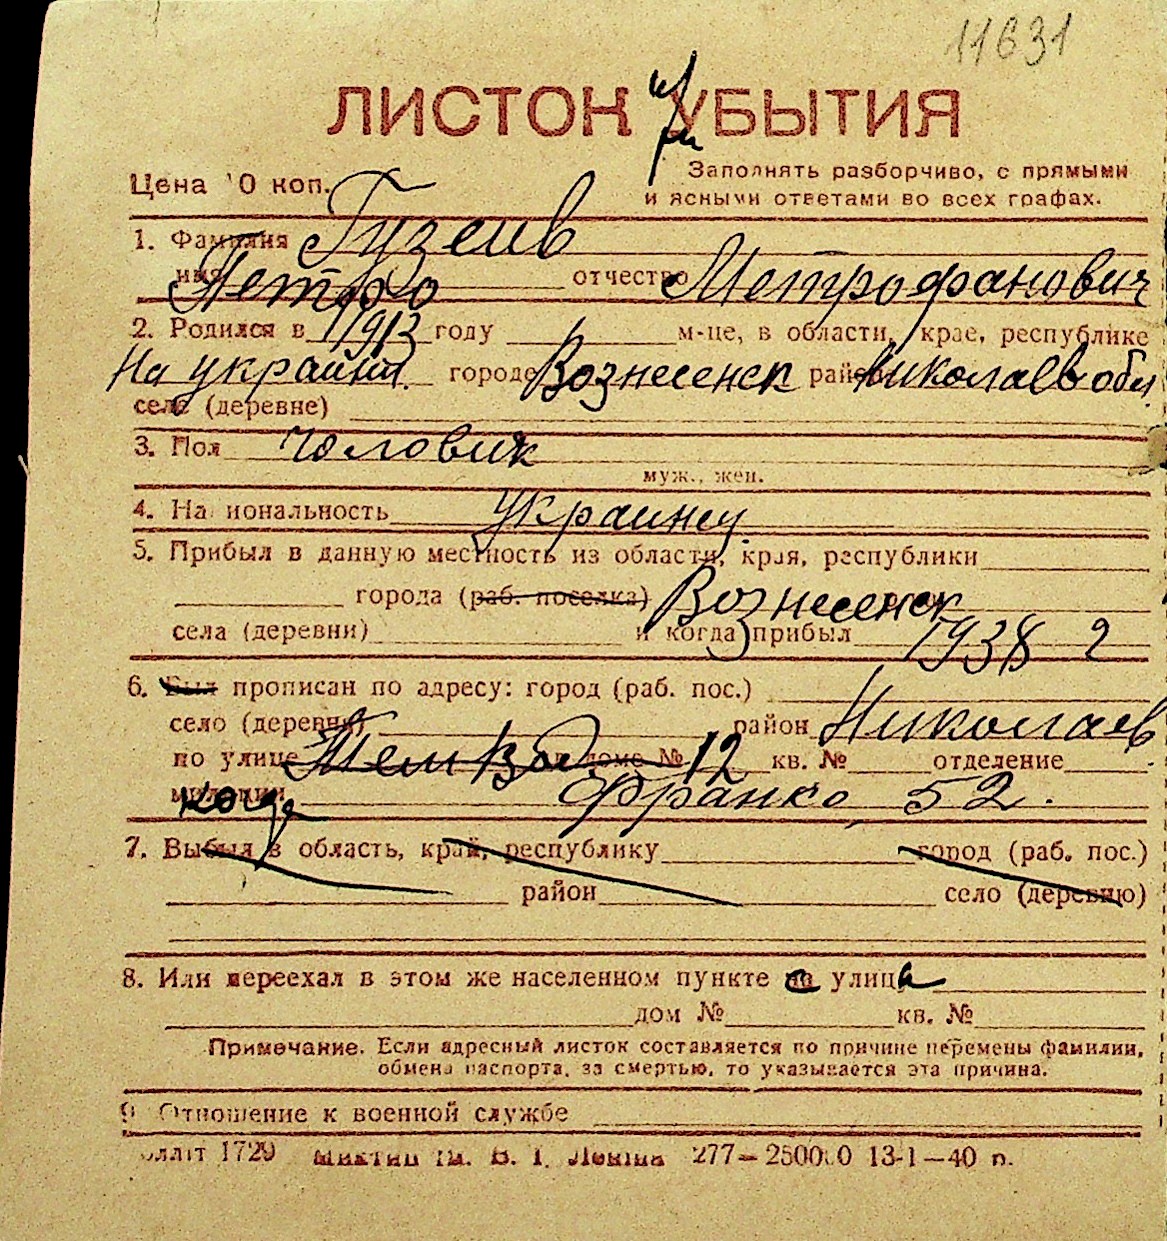 11631
ЛИСТОК УБЫТИЯ
при
Цена 10 коп.
Заполнять разборчиво, с прямыми
и ясными ответами во всех графах.
1. Фамилия Гузеив
имя Петро отчество Метрофанович
2. Родился в 1913 году м-це, в области, крае, республике
На украини городе Вознесенск районе николаев обл.
селе (деревне)
3. Пол чоловик
муж., жен.
4. Национальность украинец
5. Прибыл в данную местность из области, края, республики
города (раб. поселка) Вознесенск
села (деревни) и когда прибыл 1938 г
6. Был прописан по адресу: город (раб. пос.)
село (деревня) район Николаев
по улице дом № 12 кв. № отделение
милиции Франко, 52.
когда
7. Выбыл в область, край, республику город (раб. пос.)
район село (деревню)
8. Или переехал в этом же населенном пункте с улицы
дом № кв. №
Примечание. Если адресный листок составляется по причине перемены фамилии,
обмена паспорта, за смертью, то указывается эта причина.
9. Отношение к военной службе
1729 В. І. Леніна 277— 13-1—40 п.